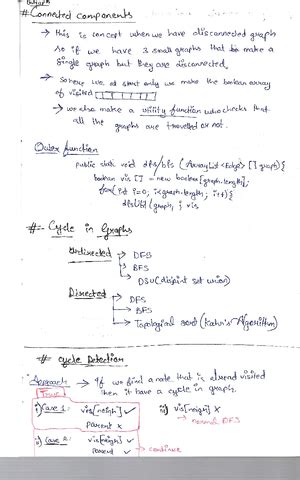 # Connated components
→ this is concept when we have disconnected graph
so if we have 3 small graphs that make a
single graph but they are disconnected.
→ So here we at start only we make the boolean array
of visited
→ we also make a utility function who checks that
all the graphs are travelled or not.
Outer function
public static void dfs/bfs (ArrayList <Edge> [] graph) {
boolean vis [] = new boolean[graph.length];
for(int i=0; i<graph.length; i++){
dfsUtil (graph, i, vis
#:- Cycle in Graphs
Undirected → DFS
→ BFS
→ DSU (disjoint set union)
Directed → DFS
→ BFS
→ Topological sort (Kahn's Algorithm)
# Cycle Detection
Approach → If we find a note that is already visited
then it have a cycle in graph.
True
i) Case 1: vis[neigh] ✓
parent x
iii) vis[neigh] x
→ normal DFS
ii) Case 2: vis[neigh] ✓
parent ✓ → continue